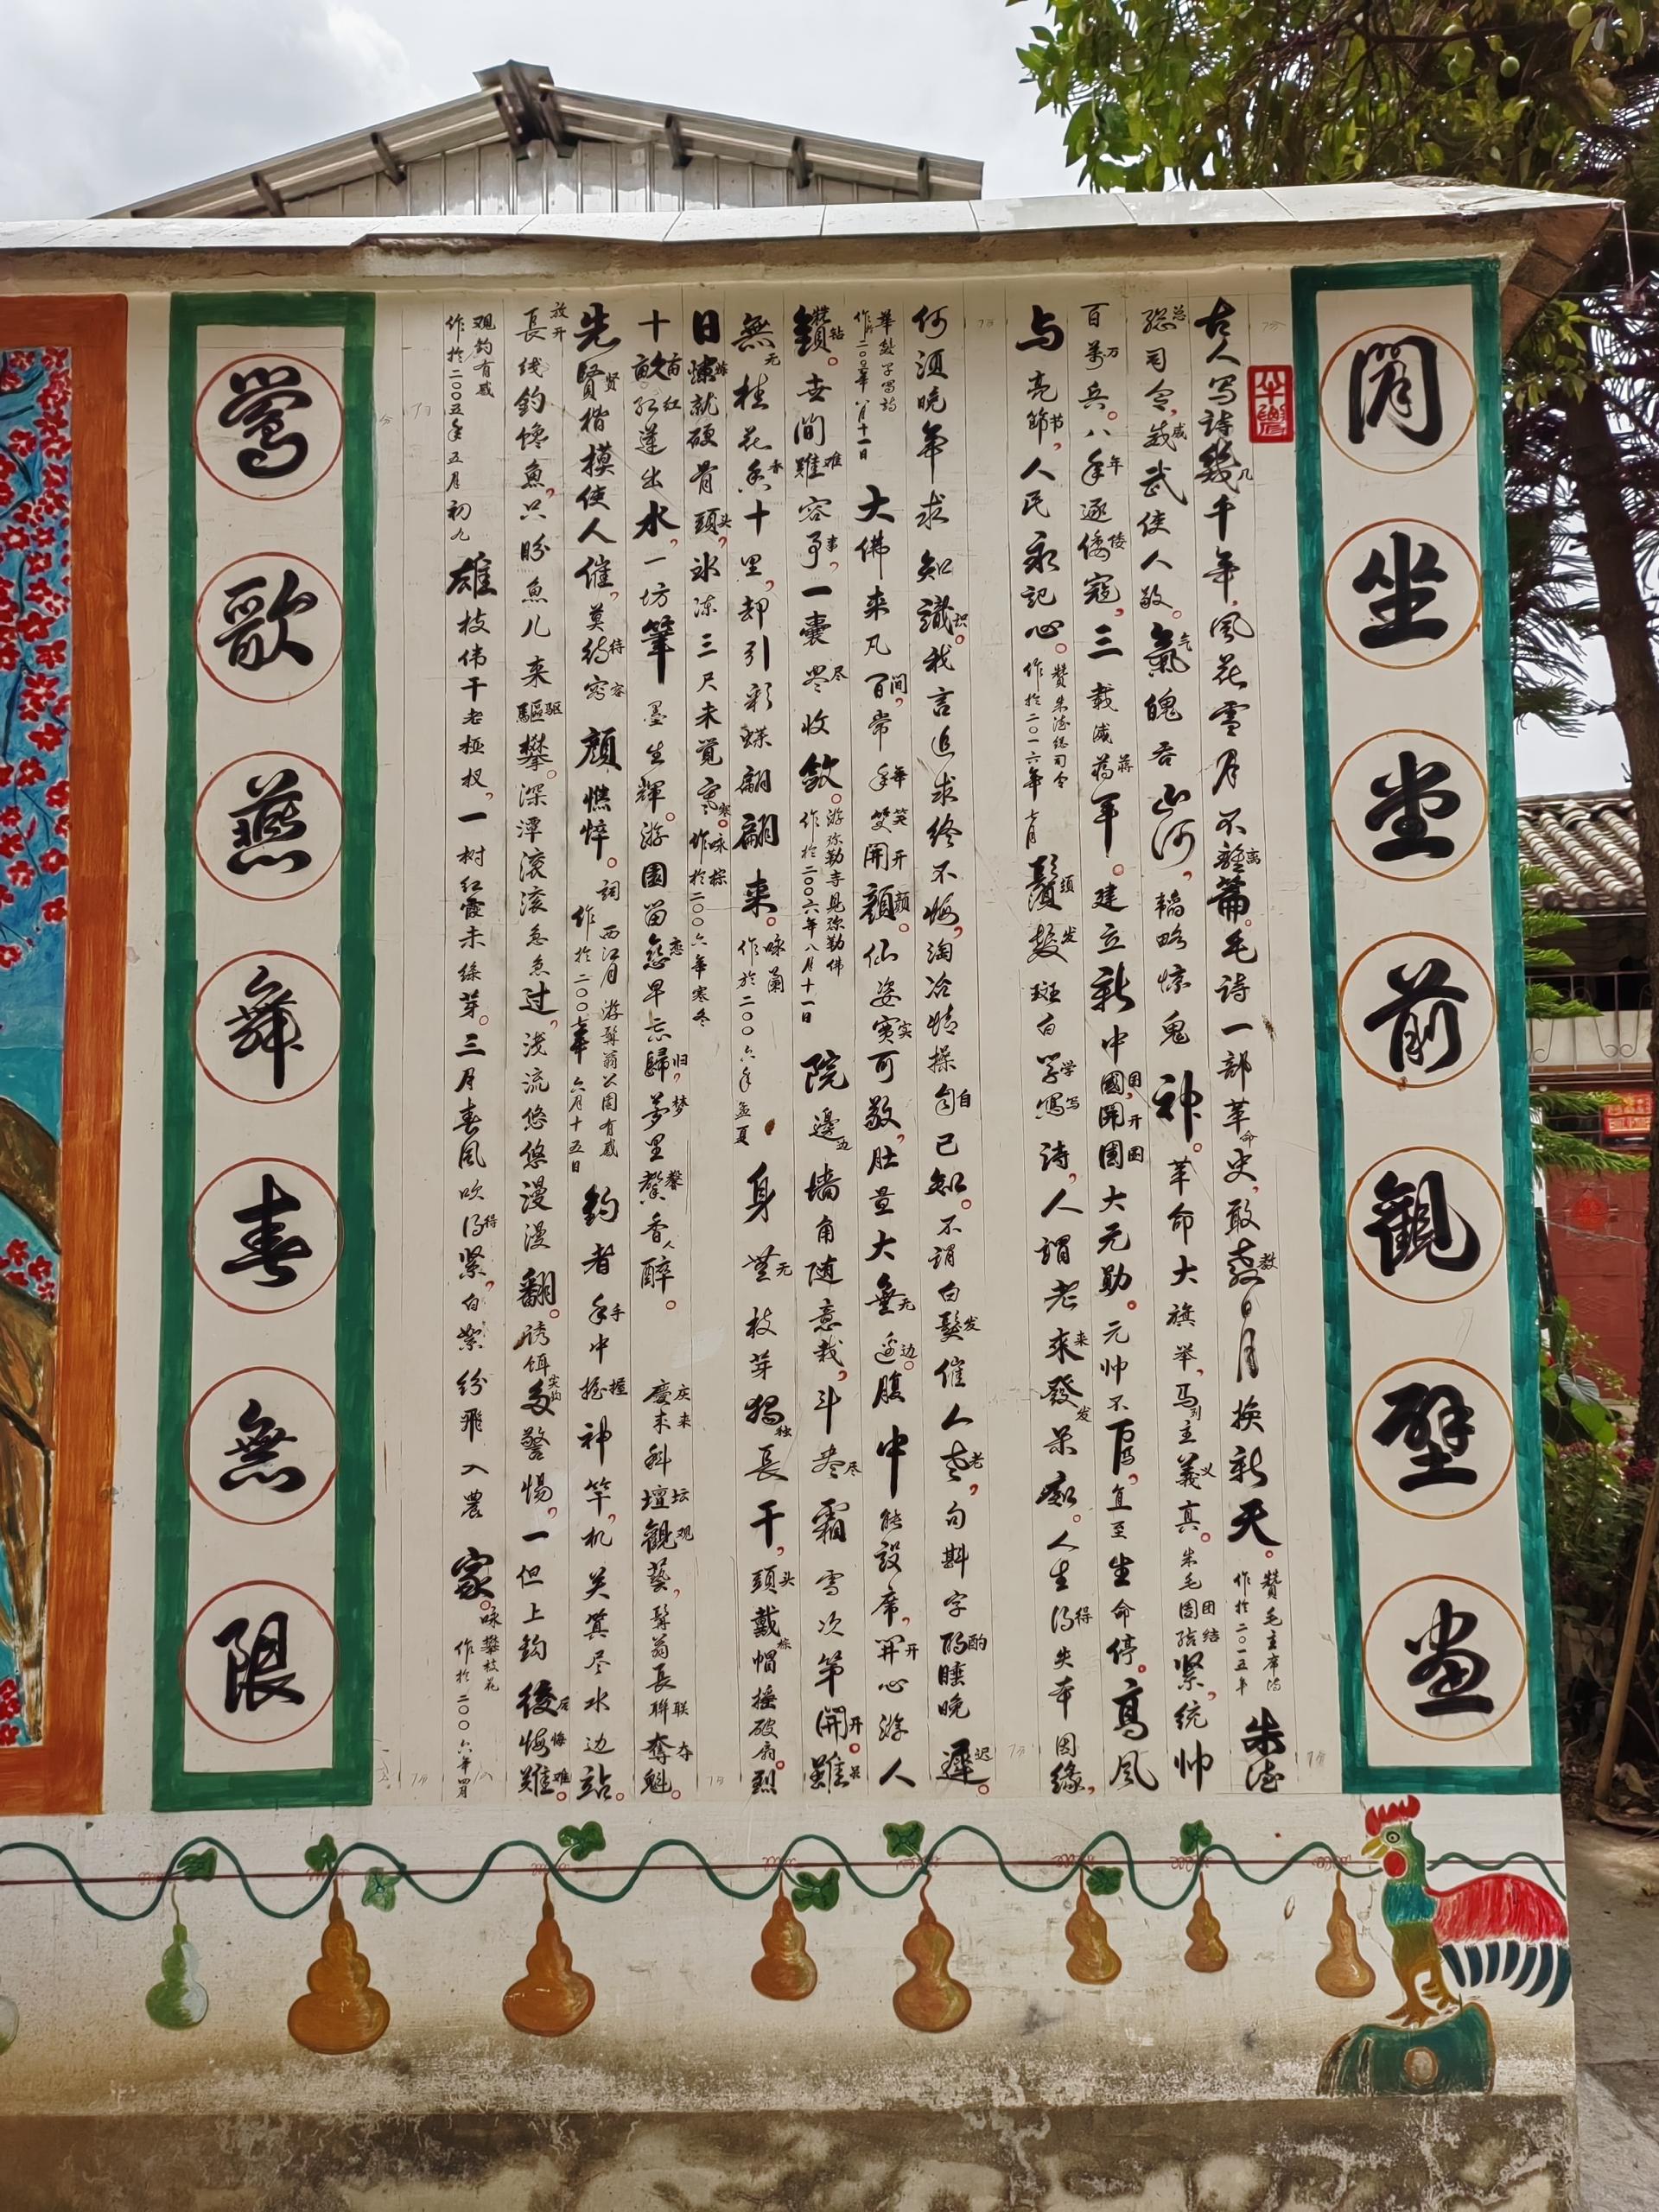 閒坐堂前觀壁画
古人写詩幾千年,風花雪月不離篇。毛诗一部革命史,敢教日月换新天。贊毛主席诗 作於二〇一五年 朱德
総司令,威武使人敬。氣魄吞山河,韬略惊鬼神。革命大旗举,马列主義真。朱毛團结紧,统帅
百萬兵。八年逐倭寇,三载滅蒋军。建立新中國,開國大元勋。元帅不居,直至生命停。高风
与亮節,人民永記心。贊朱德総司令 作於二〇一六年七月 鬚髮斑白学寫诗,人谓老来發呆痴。人生得失本因緣,
何須晚年求知識。我言追求终不悔,淘冶情操自己知。不谓白髮催人老,句斟字酌睡晚遲。
華髮学写诗 八月十一日 大佛来凡间,常年笑開顏。仙姿實可敬,肚量大無边。腹中能設席,開心游人
鑽。世间難容事,一囊尽收敛。游弥勒寺見弥勒佛 作於二〇〇六年八月十一日 院邊墙角随意栽,斗盡霜雪次第開。雖
無桂花香十里,却引彩蝶翩翩来。咏蘭 作於二〇〇六年孟夏 身無枝芽独長干,頭戴棕帽摇破扇。烈
日煉就硬骨頭,冰冻三尺未觉寒。咏棕 作於二〇〇六年寒冬
十畝红莲出水,一坊筆墨生輝。游園留恋早忘歸,夢里馨香人醉。慶来科壇觀藝,髯翁長聯奪魁。
先賢楷模使人催,莫待容顏憔悴。詞西江月 游髯翁公園有感 作於二〇〇七年六月十五日 钓者手中握神竿,机关算尽水边站。
放開長线钓馋魚,只盼魚儿来驅攀。深潭滚滚急急过,浅流悠悠漫漫翻。诱饵尖钩多警惕,一但上钩後悔難。
观钓有感 作於二〇〇五年五月初九 雄枝伟干老桠杈,一树红霞未绿芽。三月春風吹得紧,白絮纷飛入農家。咏攀枝花 作於二〇〇六年四月
鶯歌燕舞春無限